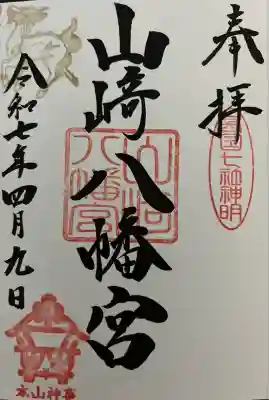 奉拝
山崎八幡宮
令和七年四月九日
八幡宮
七社神明
本山神事